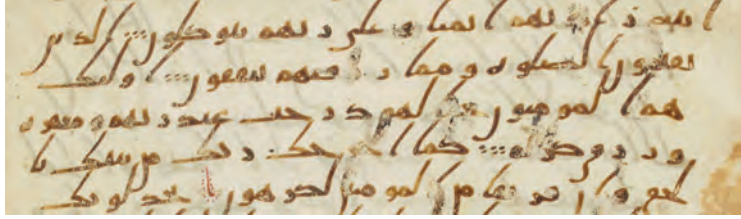 ايته زدتهم ايمنا و على ربهم يتوكلون الذين
يقيمون الصلوه و مما رزقنهم ينفقون اولئك
هم المومنون حقا لهم درجت عند ربهم ومغفره
ورزق كريم كما اخرجك ربك من بيتك با
لحق وان فريقا من المومنين لكرهون يجدلونك